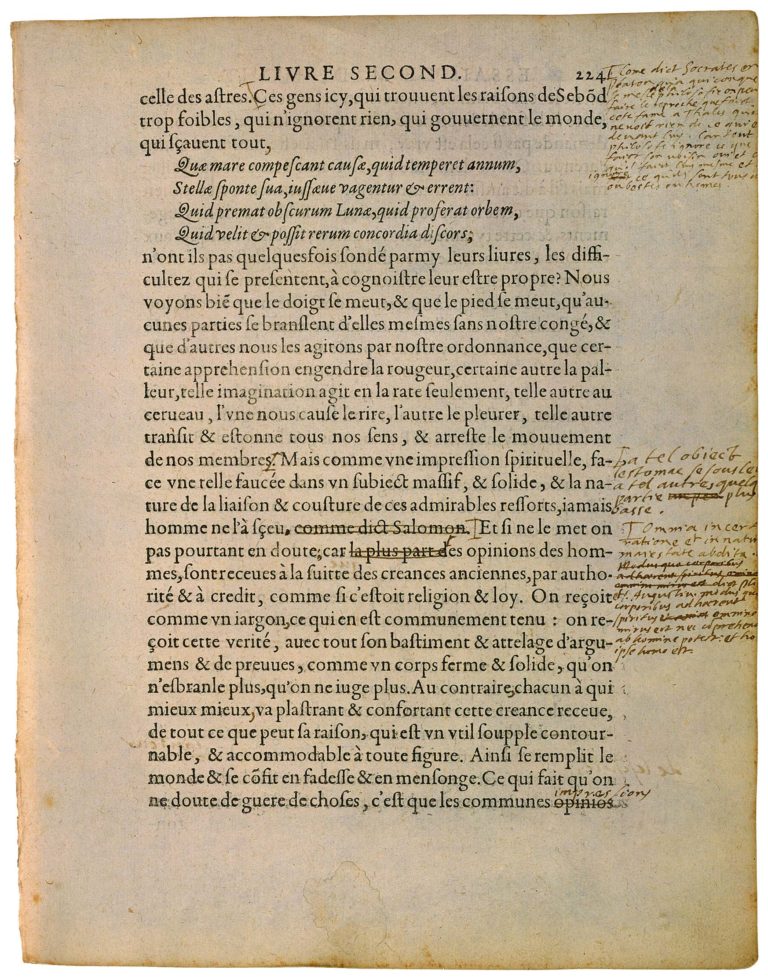 LIVRE SECOND. 224
celle des astres. Ces gens icy, qui trouuent les raisons de Sebõd
trop foibles, qui n'ignorent rien, qui gouuernent le monde,
qui sçauent tout,
Quæ mare compescant causæ, quid temperet annum,
Stellæ sponte sua, iussæue vagentur & errent:
Quid premat obscurum Lunæ, quid proferat orbem,
Quid velit & possit rerum concordia discors;
n'ont ils pas quelquesfois sondé parmy leurs liures, les diffi-
cultez qui se presentent, à cognoistre leur estre propre? Nous
voyons biẽ que le doigt se meut, & que le pied se meut, qu'au-
cunes parties se branslent d'elles mesmes sans nostre congé, &
que d'autres nous les agitons par nostre ordonnance, que cer-
taine apprehension engendre la rougeur, certaine autre la pal-
leur, telle imagination agit en la rate seulement, telle autre au
cerueau, l'vne nous cause le rire, l'autre le pleurer, telle autre
transit & estonne tous nos sens, & arreste le mouuement
de nos membres. Mais comme vne impression spirituelle, fa-
ce vne telle faucée dans vn subiect massif, & solide, & la na-
ture de la liaison & cousture de ces admirables ressorts, iamais
homme ne l'à sçeu, comme dict Salomon. Et si ne le met on
pas pourtant en doute; car la plus part des opinions des hom-
mes, sont receues à la suitte des creances anciennes, par autho-
rité & à credit, comme si c'estoit religion & loy. On reçoit
comme vn iargon, ce qui en est communement tenu: on re-
çoit cette verité, auec tout son bastiment & attelage d'argu-
mens & de preuues, comme vn corps ferme & solide, qu'on
n'esbranle plus, qu'on ne iuge plus. Au contraire, chacun à qui
mieux mieux, va plastrant & confortant cette creance receue,
de tout ce que peut sa raison, qui est vn vtil soupple contour-
nable, & accommodable à toute figure. Ainsi se remplit le
monde & se cõfit en fadesse & en mensonge. Ce qui fait qu'on
impressions
ne doute de guere de choses, c'est que les communes opiniõs
Come dict Socrates en
philosofe ignore ce que
faict son voisin oui et ce
a tel obiect
lestomac se sousleue
a tel autre quelque
partie plus
basse.
Omnia incerta
ratione et in naturæ
maiestate abdita.
St. Augustin. modus quo
corporibus adhærent
spiritus omnino
mirus est nec comprehendi
ab homine potest: et hoc
ipse homo est.